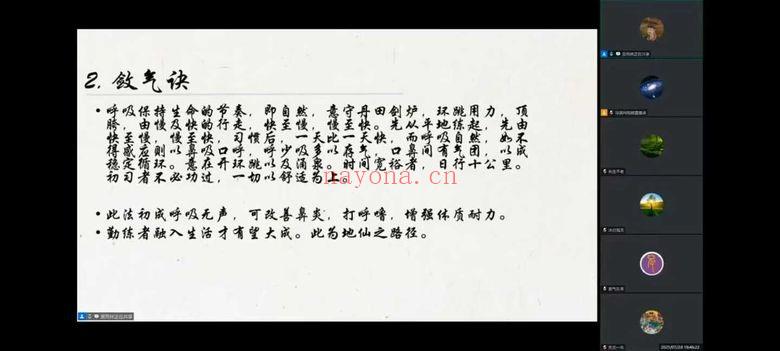 2. 敛气诀
• 呼吸保持生命的节奏，即自然，意守丹田剑炉，环跳用力，顶
胯，由慢及快的行走，快至慢，慢至快。先从平地练起，先由
快至慢，慢至快，习惯后，一天比一天快，而呼吸自然，如不
得感应则以鼻吸口呼，呼少吸多以存气，口鼻间有气团，以成
稳定循环。意在开环跳以及涌泉。时间宽裕者，日行十公里。
初习者不必功过，一切以舒适为上。
nayona.cn
• 此法初成呼吸无声，可改善鼻炎，打呼噜，增强体质耐力。
• 勤练者融入生活才有望大成。此为地仙之路径。